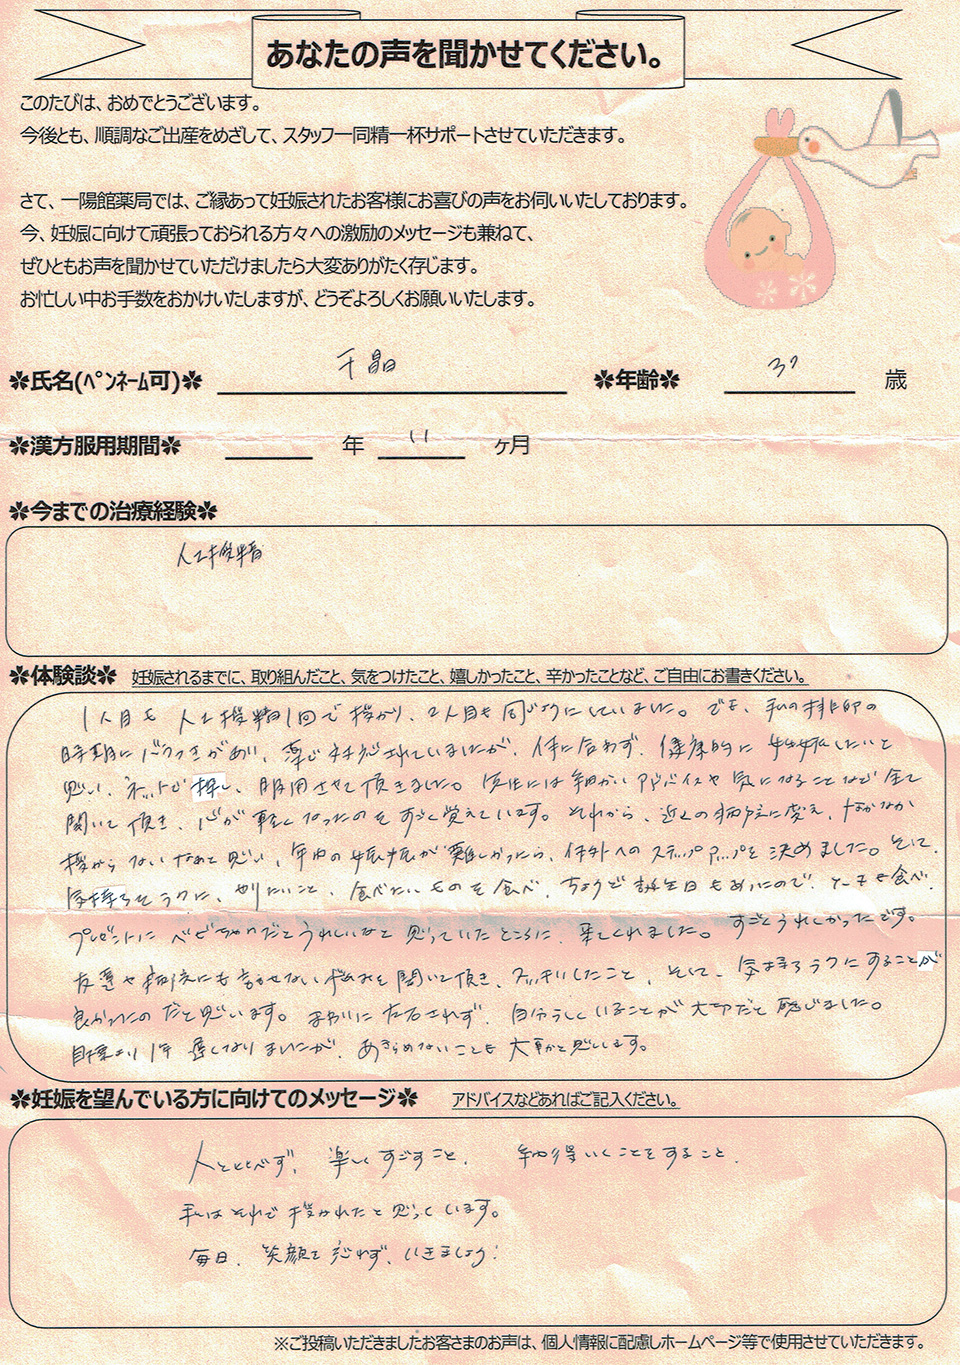 あなたの声を聞かせてください。
このたびは、おめでとうございます。
今後とも、順調なご出産をめざして、スタッフ一同精一杯サポートさせていただきます。
さて、一陽館薬局では、ご縁あって妊娠されたお客様にお喜びの声をお伺いいたしております。
今、妊娠に向けて頑張っておられる方々への激励のメッセージも兼ねて、
ぜひともお声を聞かせていただけましたら大変ありがたく存じます。
お忙しい中お手数をおかけいたしますが、どうぞよろしくお願いいたします。
✽氏名(ペンネーム可)✽ 千晶 ✽年齢✽ 37 歳
✽漢方服用期間✽ 年 11 ヶ月
✽今までの治療経験✽
人工授精
✽体験談✽ 妊娠されるまでに、取り組んだこと、気をつけたこと、嬉しかったこと、辛かったことなど、ご自由にお書きください。
1人目も 人工授精1回で授かり、2人目も同じようにしていました。でも、私の排卵の
時期にバラつきがあり、薬で対応されていましたが、体に合わず、健康的に妊娠したいと
思い、ネットで探し、服用させて頂きました。先生には細かいアドバイスや気になることなど全て
聞いて頂き、心が軽くなったのをすごく覚えています。それから、近くの病院に変え、なかなか
授からないなあと思い、年内の妊娠が難しかったら、体外へのステップアップを決めました。そして、
気持ちをラクに、やりたいこと、食べたいものを食べ、ちょうど誕生日もあったので、ケーキを食べ、
プレゼントにベビちゃんだとうれしいなと思っていたところに、来てくれました。すごくうれしかったです。
友達や病院にも言えない悩みを聞いて頂き、スッキリしたこと、そして、気持ちラクにすることが
良かったのだと思います。まわりに左右されず、自分らしくいることが大切だと感じました。
目標より1年遅くなりましたが、あきらめないことも大事だと思います。
✽妊娠を望んでいる方に向けてのメッセージ✽ アドバイスなどあればご記入ください。
人とくらべず、楽しくすごすこと、納得いくことをすること、
私はそれで授かれたと思っています。
毎日、笑顔を忘れず、いきましょう!
※ご投稿いただきましたお客さまのお声は、個人情報に配慮しホームページ等で使用させていただきます。